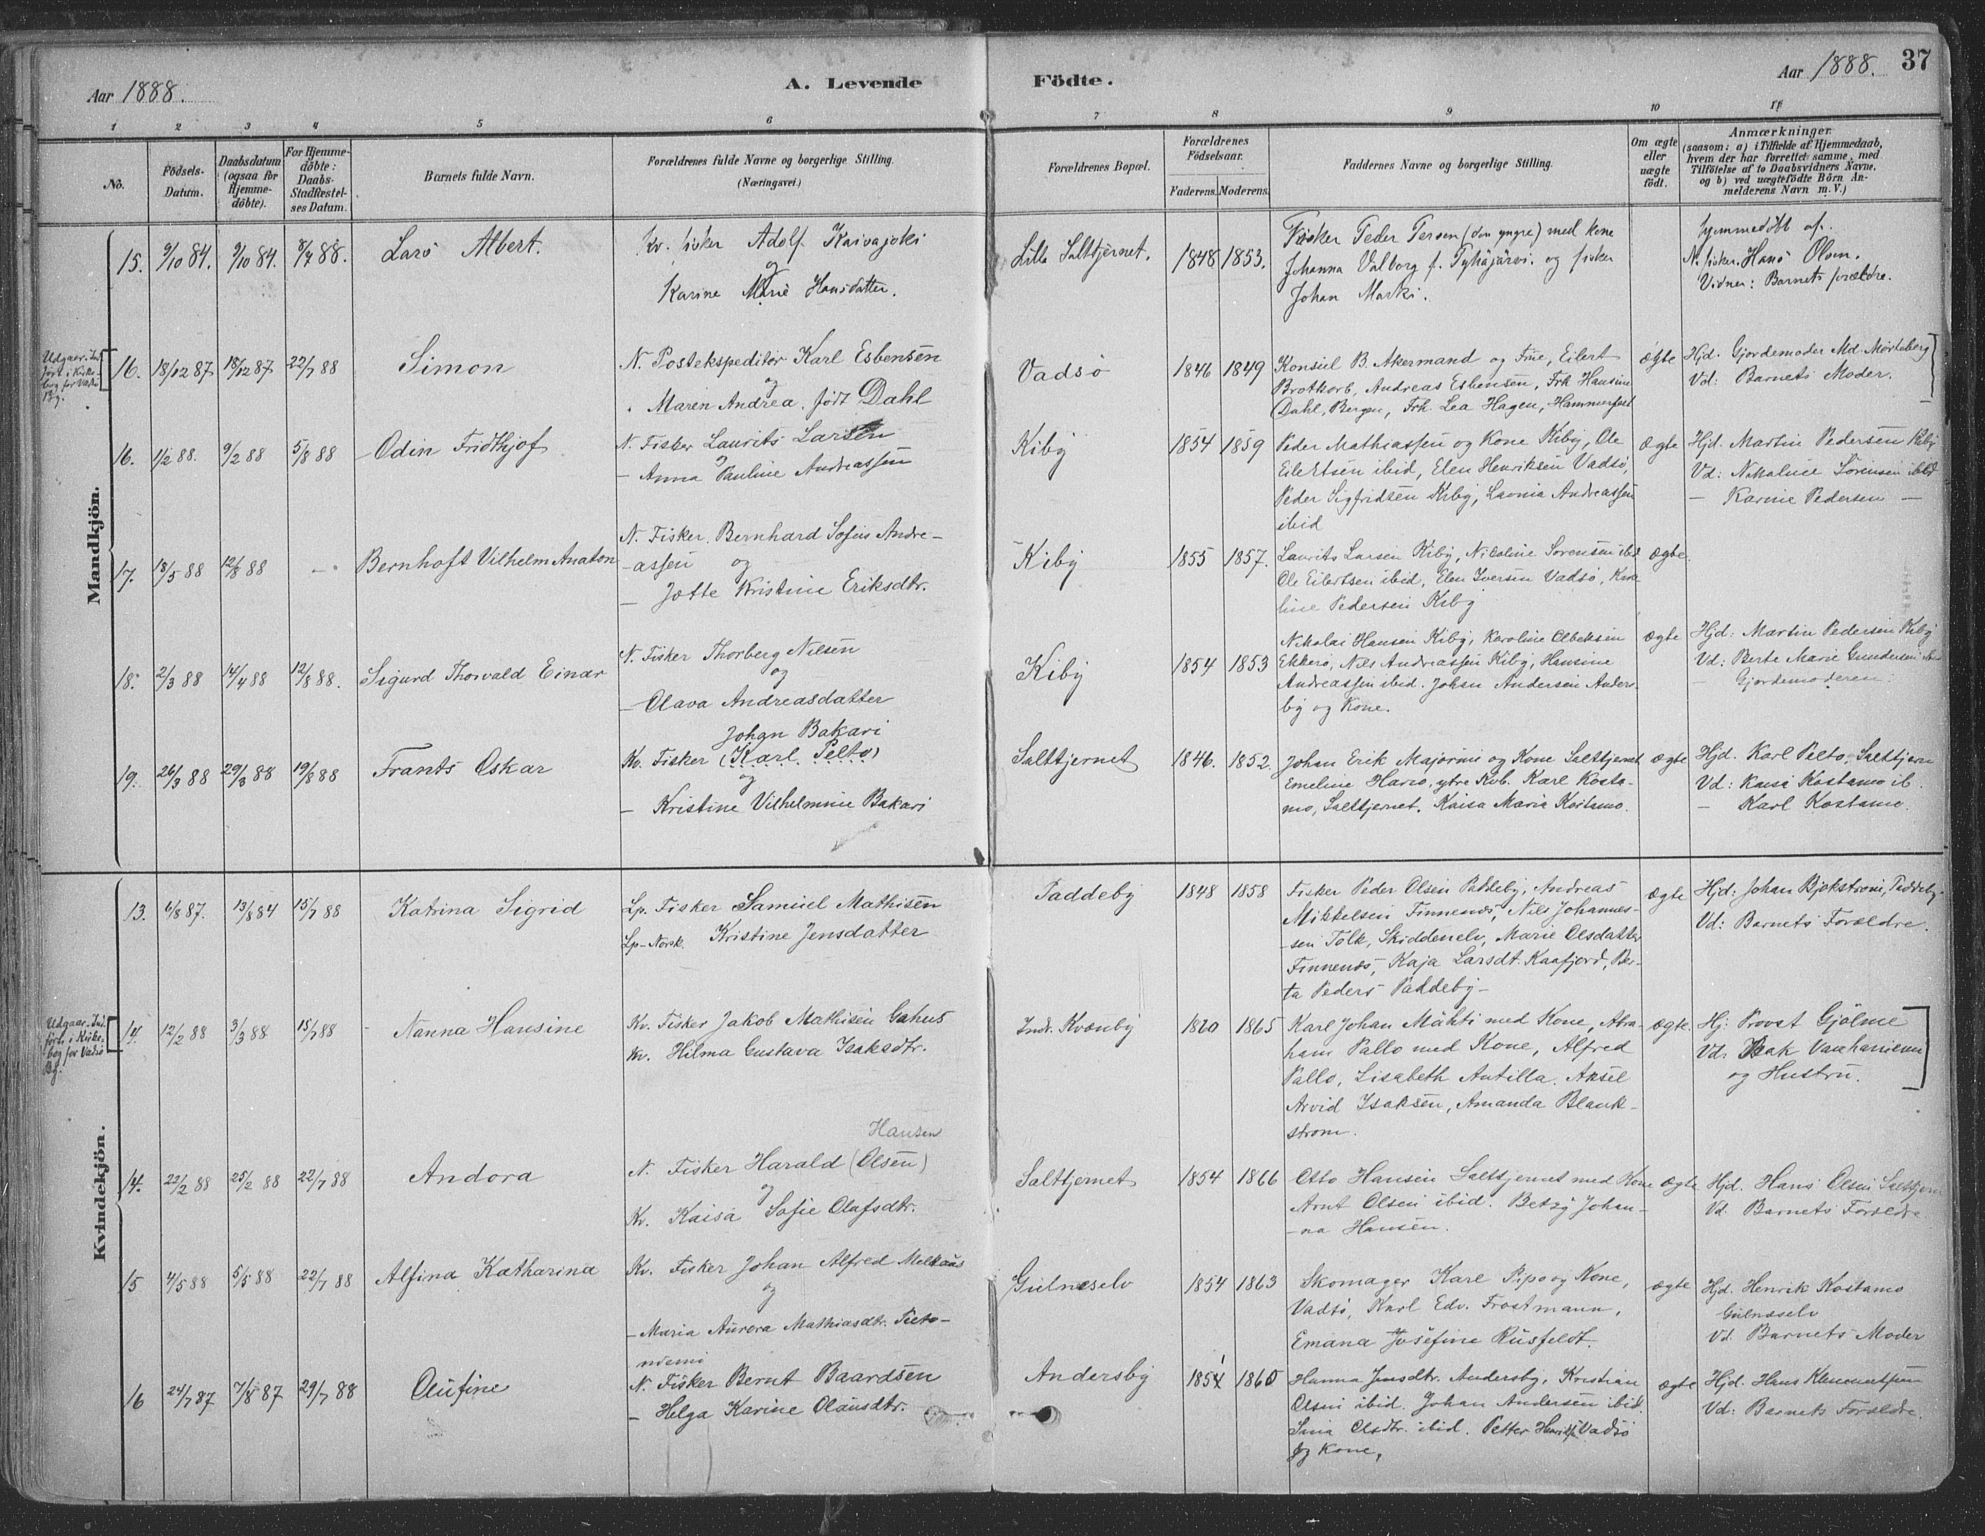 Aar 1888.
A. Levende
Födte.
Aar 1888.
37
1 2 3 4 5 6 7 8 9 10 11
No.
Födsels-Datum.
Daabsdatum (ogsaa for Hjemme-döbte).
For Hjemme-döbte: Daabs-Stadfæstel-ses Datum.
Barnets fulde Navn.
Forældrenes fulde Navne og borgerlige Stilling.
(Næringsvei.)
Forældrenes Bopæl.
Forældrenes Födselsaar.
Faderens. Moderens.
Faddernes Navne og borgerlige Stilling.
Om ægte eller uægte födt.
Anmærkninger.
(saasom: a) i Tilfælde af Hjemmedaab,
hvem der har forrettet samme, med
Tilföielse af to Daabsvidners Navne,
og b) ved uægtefödte Börn An-
melderens Navn m. V.)
Mandkjön.
15. 9/10 84. 9/10 84. 8/7 88. Lars Albert.
Kv. fisker Adolf Kaivajoki
og
Karine Marie Hansdatter.
Lille Salttjernet. 1848 1853.
Fisker Peder Persen (den yngre) med kone
Johanna Valborg f. Pyhäjärvi. og fisker
Johan Marki.
hjemmedöbt af.
N. fisker Hans Olsen.
Vidner: Barnets forældre.
Udgaar. Ind-
fört i Kirke-
bog for Vadsö
By.
16. 18/12 87 18/12 87 22/7 88 Simon
N. Postekspeditör Karl Esbensen
og
Maren Andrea. født Dahl
Vadsö 1846 1849
Konsul B. Akermand og Frue, Eilert
Brotkorb, Andreas Esbensen, Frk Hansine
Dahl, Bergen, Frk Lea Hagen, Hammerfest
ægte
Hjd. Gjordemoder Md. Mörteberg
Vd: Barnets Moder.
16. 1/2 88. 9/2 88 5/8 88 Odin Fridthjof
N. Fisker Laurits Larsen
og
– Anna Pauline Andreassen
Kiby 1854 1859
Peder Mathiassen og Kone Kiby, Ole
Eilertsen ibid, Elen Henriksen Vadsö,
Peder Sigfridsen Kiby, Lavnia Andreassen
ibid
ægte
Hjd: Martin Pedersen Kiby
Vd: Nikoline Sörensen ibid
– Karine Pedersen –
17. 18/5 88 12/8 88 – Bernhoft Vilhelm Anaton
N. Fisker. Bernhard Sofus Andre-
-assen og
– Jætte Kristine Eriksdtr.
Kiby 1855 1857.
Laurits Larsen Kiby, Nikoline Sorensen ibid
Ole Eilertsen ibid, Elen Iversen Vadsö, Karo-
line Pedersen Kiby
ægte.
18. 2/3 88 14/4 88 12/8 88. Sigurd Thorvald Einar
N. Fisker Thorberg Nilsen
og
– Olava Andreasdatter
Kiby 1854 1853
Nikolai Hansen Kiby, Karoline Olbeksen
Ekkerö, Nils Andreassen Kiby, Hansine
Andreassen ibid. Johan Andersen Anders-
by og Kone.
ægte
Hjd: Martin Pedersen Kiby
Vd: Berte Marie Gundersen ibid
– Gjordemoderen.
19. 26/3 88 29/3 88 19/8 88 Frants Oskar
Johan Bakari
Kv. Fisker (Karl Pelto)
og
– Kristine Vilhelmine Bakari
Salttjernet 1846. 1852.
Johan Erik Majavmi og Kone Salttjernet
Emeline Havio, ytre Kvb. Karl Kosta-
mo, Salttjernet. Kaisa Maria Kostamo.
ægte
Hjd. Karl Pelto, Salttjern
Vd: Kaisa Kostamo ib.
– Karl Kostamo.
Kvindekjön.
13. 6/8 87. 13/8 84 15/7 88 Katrina Sigrid
Lp. Fisker Samuel Mathisen
Lp-Norsk. Kristine Jensdatter
Paddeby 1848 1858
Fisker Peder Olsen Paddeby, Andreas
Mikkelsen Finnenæs, Nils Johannes-
-sen Tolk, Skiddenelv, Marie Olsdatter
Finnenæs, Kaja Larsdt. Kaafjord, Ber-
ta Peders Paddeby –
ægte
Hjd: Johan Bjokström, Paddeby.
Vd: Barnets Forældre.
Udgaar. Ind-
fört i Kirke-
bog for Vadsö
By.
14. 12/2 88 3/3 88 15/7 88 Nanna Hansine
Kv. Fisker Jakob Mathisen Gahus
Kv. Hilma Gustava Isaksdtr.
Indr. Kvænby 1820 1865
Karl Johan Mähti med Kone, Abra-
ham Pallo med Kone, Alfred
Pallo, Lisabeth Antilla. Aksel
Arvid Isaksen, Amanda Blank-
strom.
ægte
Hj. Provst Gjölme
Vd: Isak Vanhanienen
og Hustru.
14. 22/2 88 25/2 88 22/7 88 Andora
Hansen
N. Fisker Harald (Olsen)
og
Kv. Kaisa Sofie Olafsdtr.
Salttjernet 1854 1866
Otto Hansen Salttjernet med Kone
Arnt Olsen ibid. Betzy Johan-
-na Hansen.
ægte
Hjd. Hans Olsen Salttjern
Vd. Barnets Forældre
15 4/5 88 5/5 88 22/7 88 Alfina Katharina
Kv. Fisker Johan Alfred Melkäas
og
– Maria Aurora Mathiasdtr. Pieto-
niemi
Gulneselv 1854 1863
Skomager Karl Pipo og Kone,
Vadsö, Karl Edv. Frostmann,
Emana Josefine Rusfeldt.
ægte
Hjd. Henrik Kostamo
Gulneselv
Vd. Barnets Moder
16 24/7 87 7/8 87 29/7 88 Olufine
N. Fisker Bernt Baardsen
– Helga Karine Olausdtr.
Andersby 1854 1860
Hanna Jensdtr. Andersby, Kristian
Olsen ibid. Johan Andersen ibid.
Sina Olsdtr. ibid. Petter Henriks Vadsö
og Kone,
ægte
Hjd. Hans Klemmetsen
Vd: Barnets Forældre.